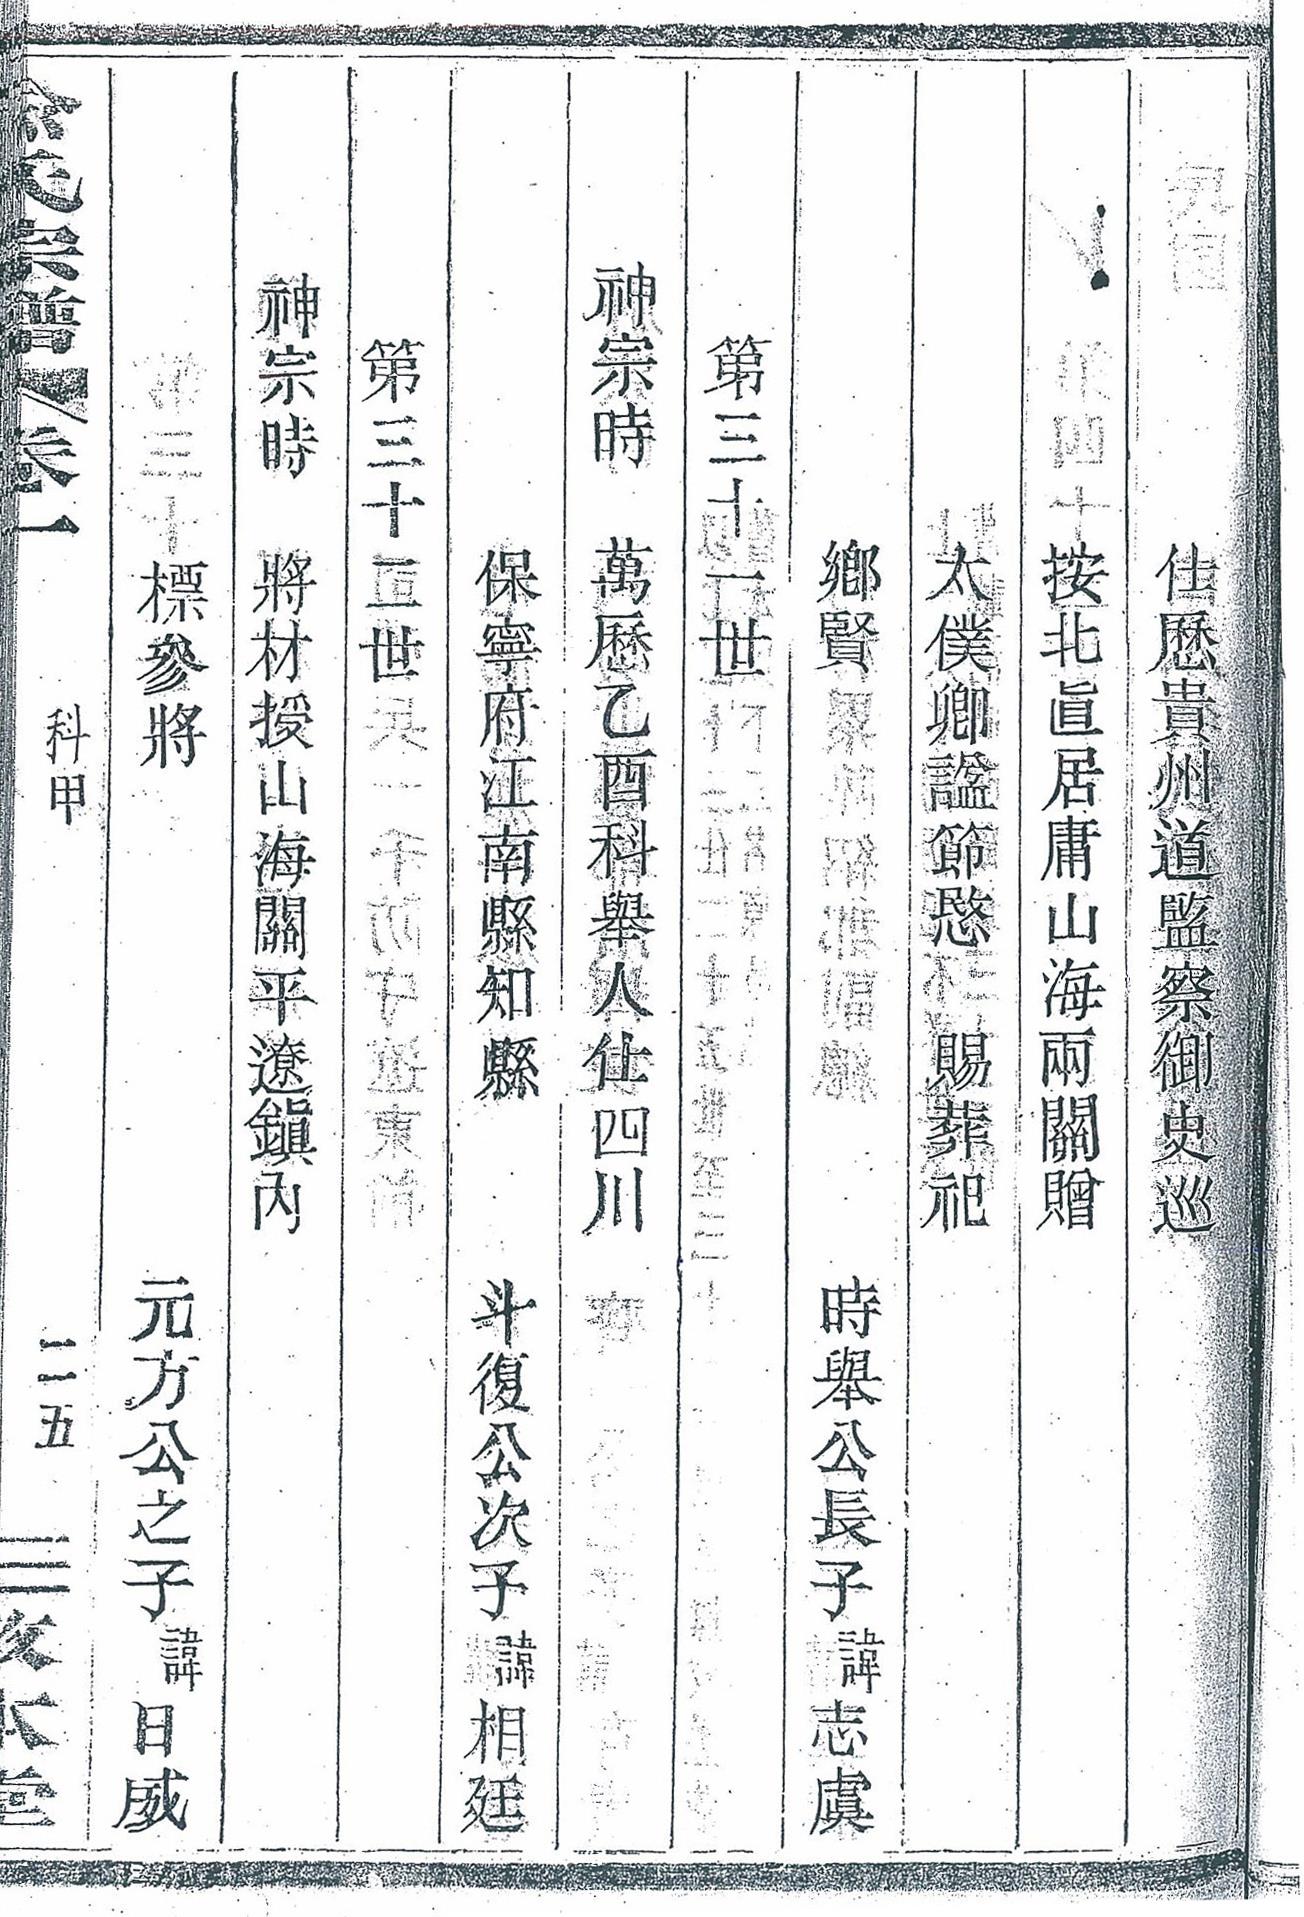 仕歷貴州道監察御史巡
按北直居庸山海兩關贈
太僕卿諡節愍 賜葬祀
鄉賢 時舉公長子諱志虞
第三十一世
神宗時 萬歷乙酉科舉人仕四川
保寧府江南縣知縣 斗復公次子諱相廷
第三十二世
神宗時 將材授山海關平遼鎭內
標參將 元方公之子諱日威
氏宗譜 卷一 科甲 二五 本堂